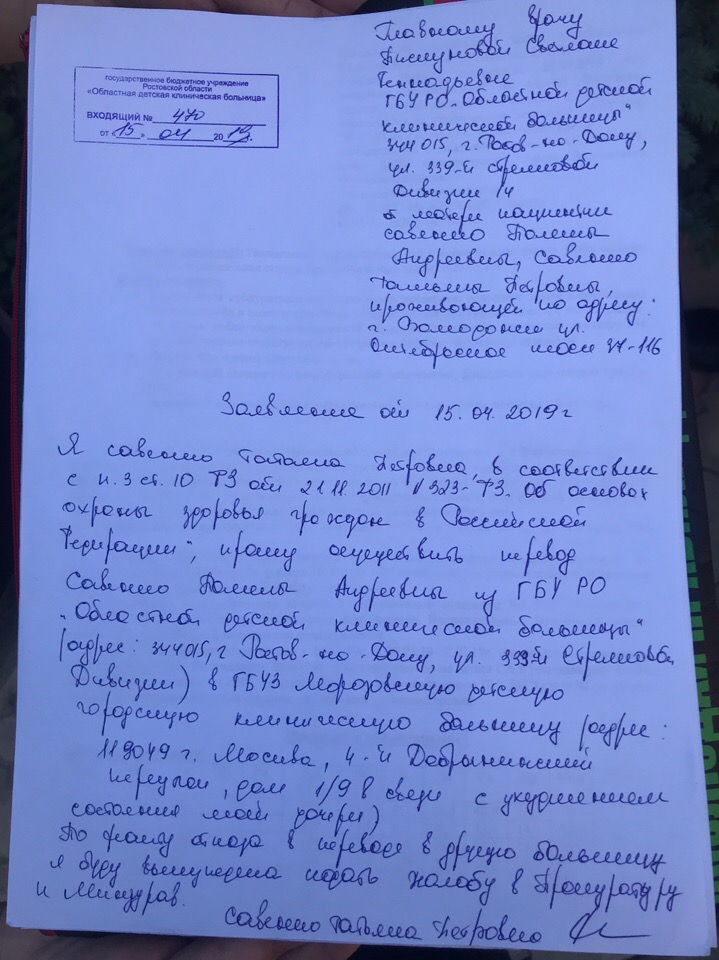 государственное бюджетное учреждение
Ростовской области
«Областная детская клиническая больница»
ВХОДЯЩИЙ № 470
от «15» 04 2019г.
Главному врачу
Пискуновой Светлане
Геннадьевне
ГБУ РО „Областной детской
клинической больницы"
344015, г. Ростов-но-Дону,
ул. 339-й стрелковой
Дивизии 14
от матери пациентки
Савенко Полины
Андреевны, Савенко
Татьяны Петровны,
проживающей по адресу:
г. Волгодонск ул.
Октябрьское шоссе 37-116
Заявление от 15.04.2019г
Я савенко Татьяна Петровна, в соответствии
с п. 3 ст. 10 ФЗ от 21.11.2011 N323-ФЗ „Об основах
охраны здоровья граждан в Российской
Федерации", прошу осуществить перевод
Савенко Полины Андреевны из ГБУ РО
„Областной детской клинической больницы"
(адрес: 344015, г Ростов-но-Дону, ул. 339й Стрелковой
Дивизии) в ГБУЗ Морозовскую детскую
городскую клиническую больницу (адрес:
119049 г. Москва, 4-й Добрынинский
переулок, дом 1/9 в связи с ухудшением
состояния моей дочери)
По факту отказа в переводе в другую больницу
я буду вынуждена подать жалобу в Прокуратуру
и Минздрав.
савенко Татьяна Петровна